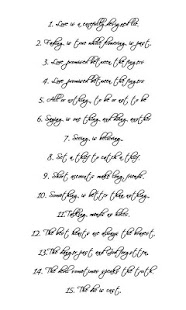 1. Love is a carefully designed lie.
2. Fading is true while flowering is past.
3. Love promised between the fingers
4. Love promised between the fingers
5. All or nothing, to be or not to be.
6. Saying is one thing and doing another
7. Seeing is believing.
8. Set a thief to catch a thief.
9. Short accounts make long friends.
10. Something is better than nothing.
11. Talking mends no holes.
12. The best hearts are always the bravest.
13. The danger past and God forgotten.
14. The devil sometimes speaks the truth.
15. The die is cast.